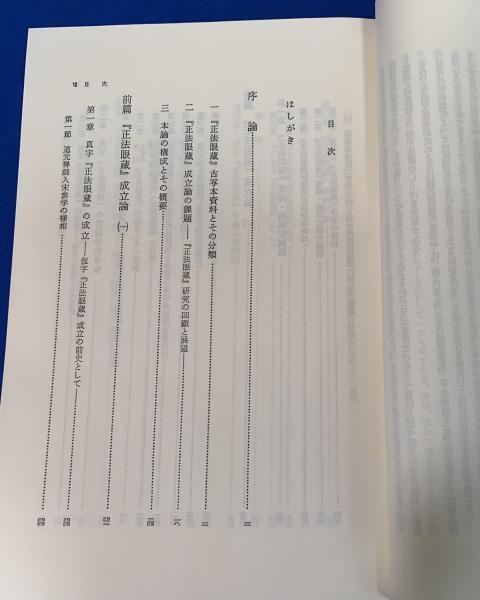 目次
はしがき
序論……三
一 『正法眼蔵』古写本資料とその分類……三
二 『正法眼蔵』成立論の課題――『正法眼蔵』研究の回顧と展望――……一八
三 本論の構成とその概要……
前篇 『正法眼蔵』成立論 (一)……
第一章 真字『正法眼蔵』の成立――仮字『正法眼蔵』成立の前史として――……
第一節 道元禅師入宋参学の様相……
目次